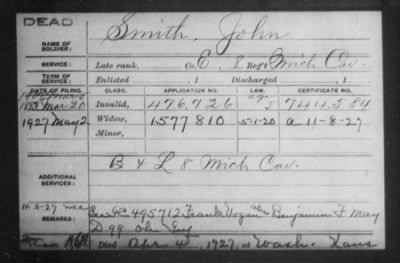 DEAD
NAME OF SOLDIER: Smith, John
SERVICE: Late rank, Co. E, 8 Reg't Mich Cav.
TERM OF SERVICE: Enlisted , 1 Discharged , 1
DATE OF FILING. CLASS. APPLICATION NO. LAW. CERTIFICATE NO.
1883 Mar 20 Invalid, 476,726 J 744584
1927 May 2 Widow, 1577810 5-1-20 a 11-8-27
Minor,
ADDITIONAL SERVICES: B & L 8 Mich Cav.
11-2-27
REMARKS: 495712 Frank Vogan als Benjamin F May
D 99 Ohio Inf
Died Apr 4, 1927, at Wash. Kans